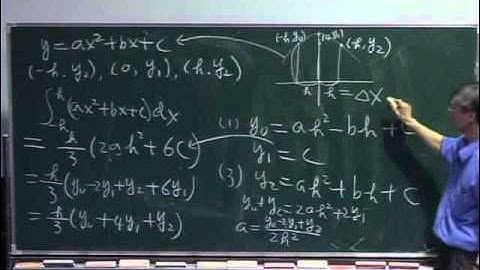 y = ax² + bx + c
(-h, y₀), (0, y₁), (h, y₂)
∫₋ₕʰ (ax² + bx + c) dx
= h/3 (2ah² + 6c)
= h/3 (y₀ - 2y₁ + y₂ + 6y₁)
= h/3 (y₀ + 4y₁ + y₂)
(-h, y₀)
(h, y₂)
h
h = ΔX
(1) y₀ = ah² - bh + c
y₁ = c
(3) y₂ = ah² + bh + c
y₀ + y₂ = 2ah² + 2y₁
a = (y₀ - 2y₁ + y₂)/2h²